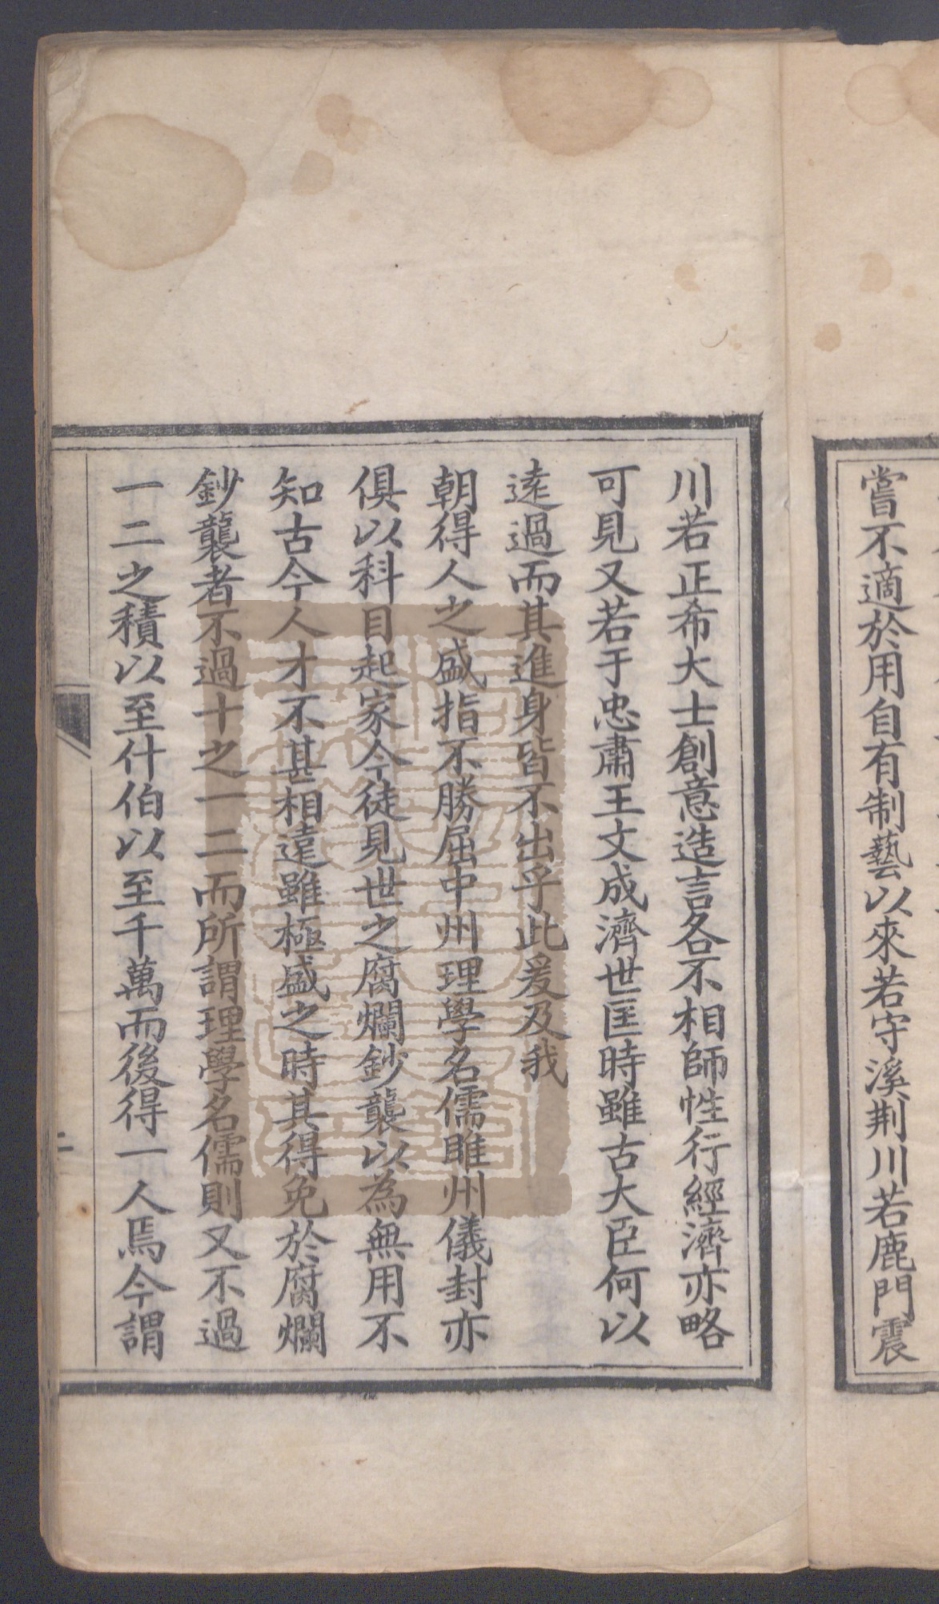 嘗不適於用自有制藝以來若守溪荆川若鹿門震
川若正希大士創意造言各不相師性行經濟亦略
可見又若于忠肅王文成濟世匡時雖古大臣何以
遠過而其進身皆不出乎此爰及我
朝得人之盛指不勝屈中州理學名儒睢州儀封亦
俱以科目起家今徒見世之腐爛鈔襲以為無用不
知古今人才不甚相遠雖極盛之時其得免於腐爛
鈔襲者不過十之一二而所謂理學名儒則又不過
一二之積以至什伯以至千萬而後得一人焉今謂
二